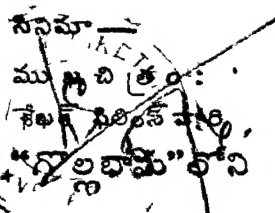 సినిమా —
ముఖ చిత్రం :
శేఖర్ ఫిలింస్ వారి
"గొల్లభామ" లోని